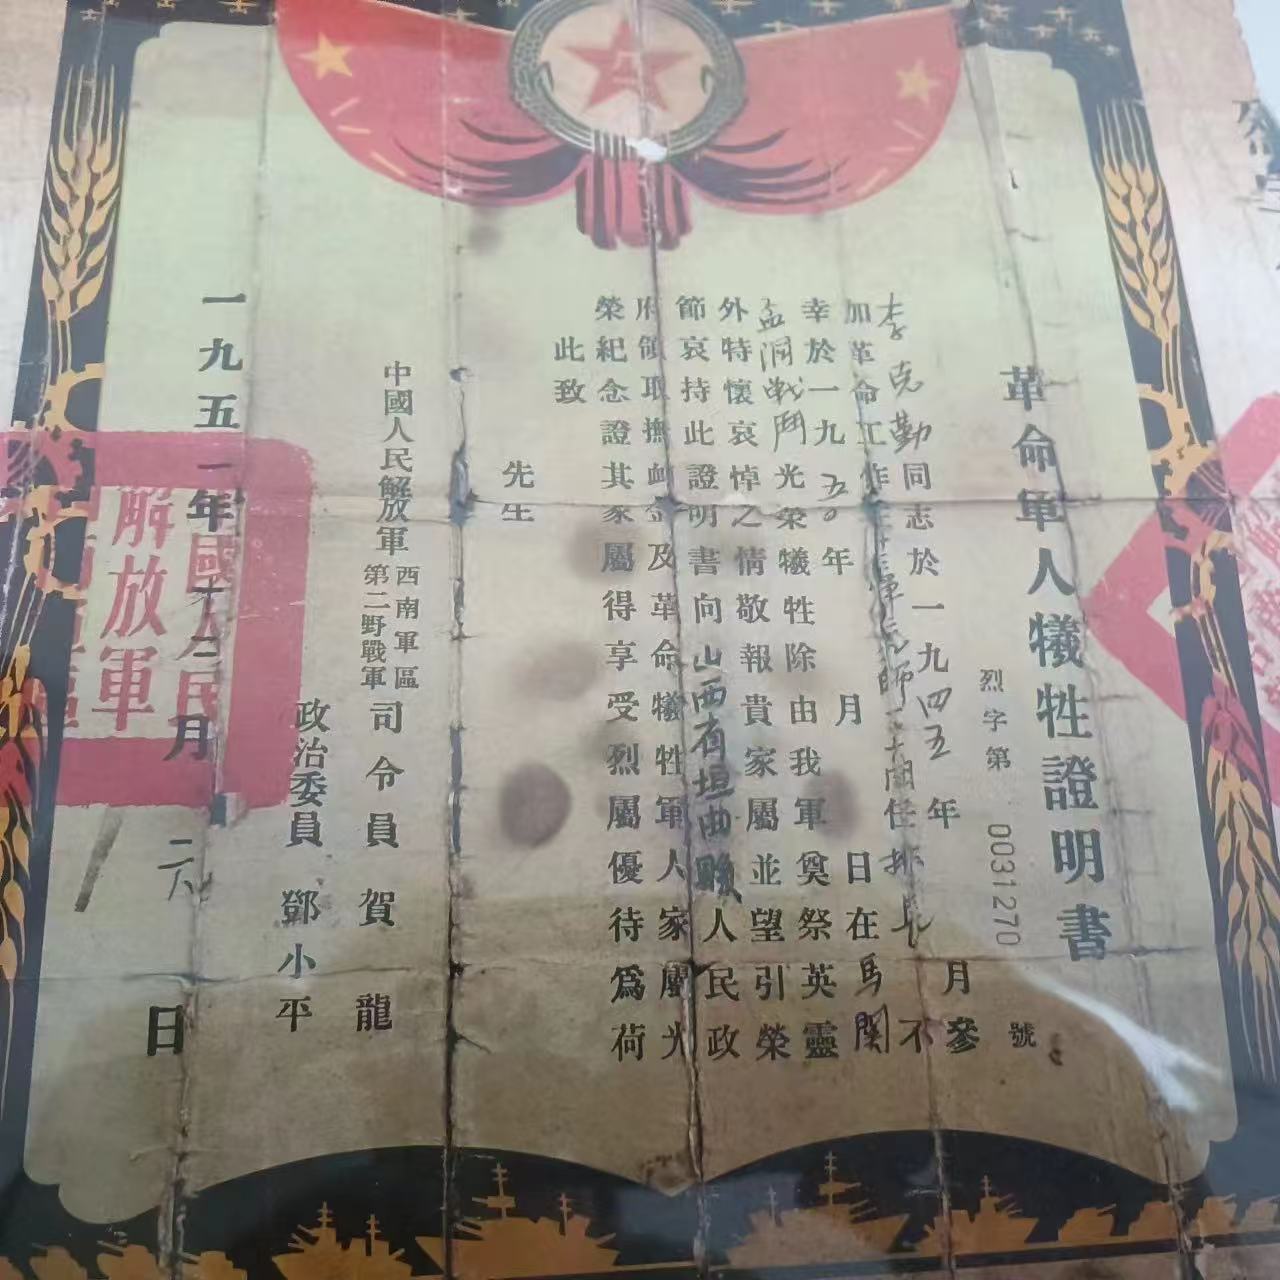 革命軍人犧牲證明書
烈字第 0031270 號
李克勤同志於一九四五年 月參
加革命工作 師 團任排長不
幸於一九五〇年 月 日在馬関
孟洞戰鬥光榮犧牲除由我軍奠祭英靈
外特懷哀悼之情敬報貴家屬並望引榮
節哀持此證明書向山西省垣曲縣人民政
府領取撫卹金及革命犧牲軍人家屬光
榮紀念證其家屬得享受烈屬優待為荷
此致
先生
中國人民解放軍 西南軍區 第二野戰軍 司令員 賀龍
政治委員 鄧小平
一九五一年十二月二八日
國人民
解放軍